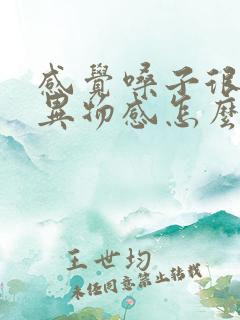 感覺嗓子很
異物感怎麼
王世均
未経同意禁止转載